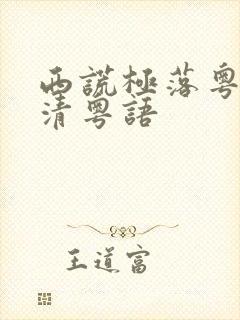 西謊極落粵
清粵語
王道富